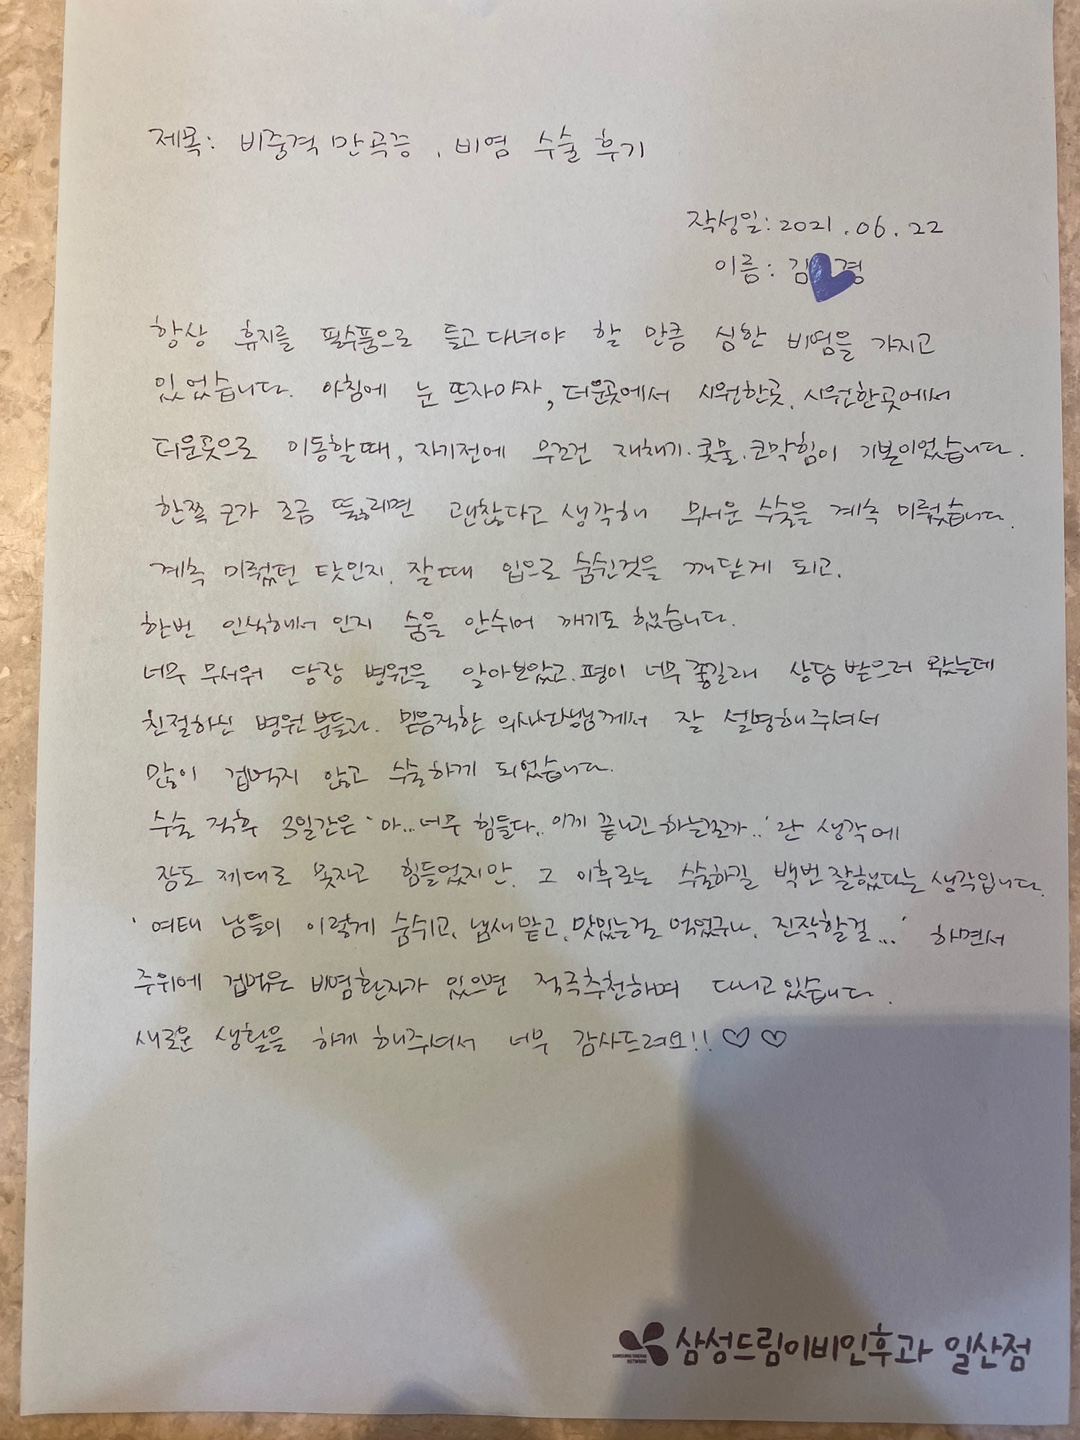 제목: 비중격 만곡증, 비염 수술 후기
작성일: 2021.06.22
이름: 김 경
항상 휴지를 필수품으로 들고 다녀야 할 만큼 심한 비염을 가지고
있었습니다. 아침에 눈 뜨자마자, 더운곳에서 시원한곳, 시원한곳에서
더운곳으로 이동할때, 자기전에 무조건 재채기·콧물·코막힘이 기본이었습니다.
한쪽 코가 조금 뚫리면 괜찮다고 생각해 무서운 수술을 계속 미뤘습니다.
계속 미뤘던 탓인지, 잘때 입으로 숨쉰것을 깨닫게 되고,
한번 인식해서 인지 숨을 안쉬어 깨기도 했습니다.
너무 무서워 당장 병원을 알아보았고, 평이 너무 좋길래 상담 받으러 왔는데
친절하신 병원 분들과, 믿음직한 의사선생님께서 잘 설명해주셔서
많이 겁먹지 않고 수술하게 되었습니다.
수술 직후 3일간은 '아...너무 힘들다.. 이게 끝나긴 하는걸까..' 란 생각에
잠도 제대로 못자고 힘들었지만, 그 이후로는 수술하길 백번 잘했다는 생각입니다.
'여태 남들이 이렇게 숨쉬고, 냄새맡고, 맛있는걸 먹었구나, 진작할걸...' 하면서
주위에 겁먹은 비염환자가 있으면 적극추천하며 다니고 있습니다.
새로운 생활을 하게 해주셔서 너무 감사드려요!! ♡ ♡
삼성드림이비인후과 일산점